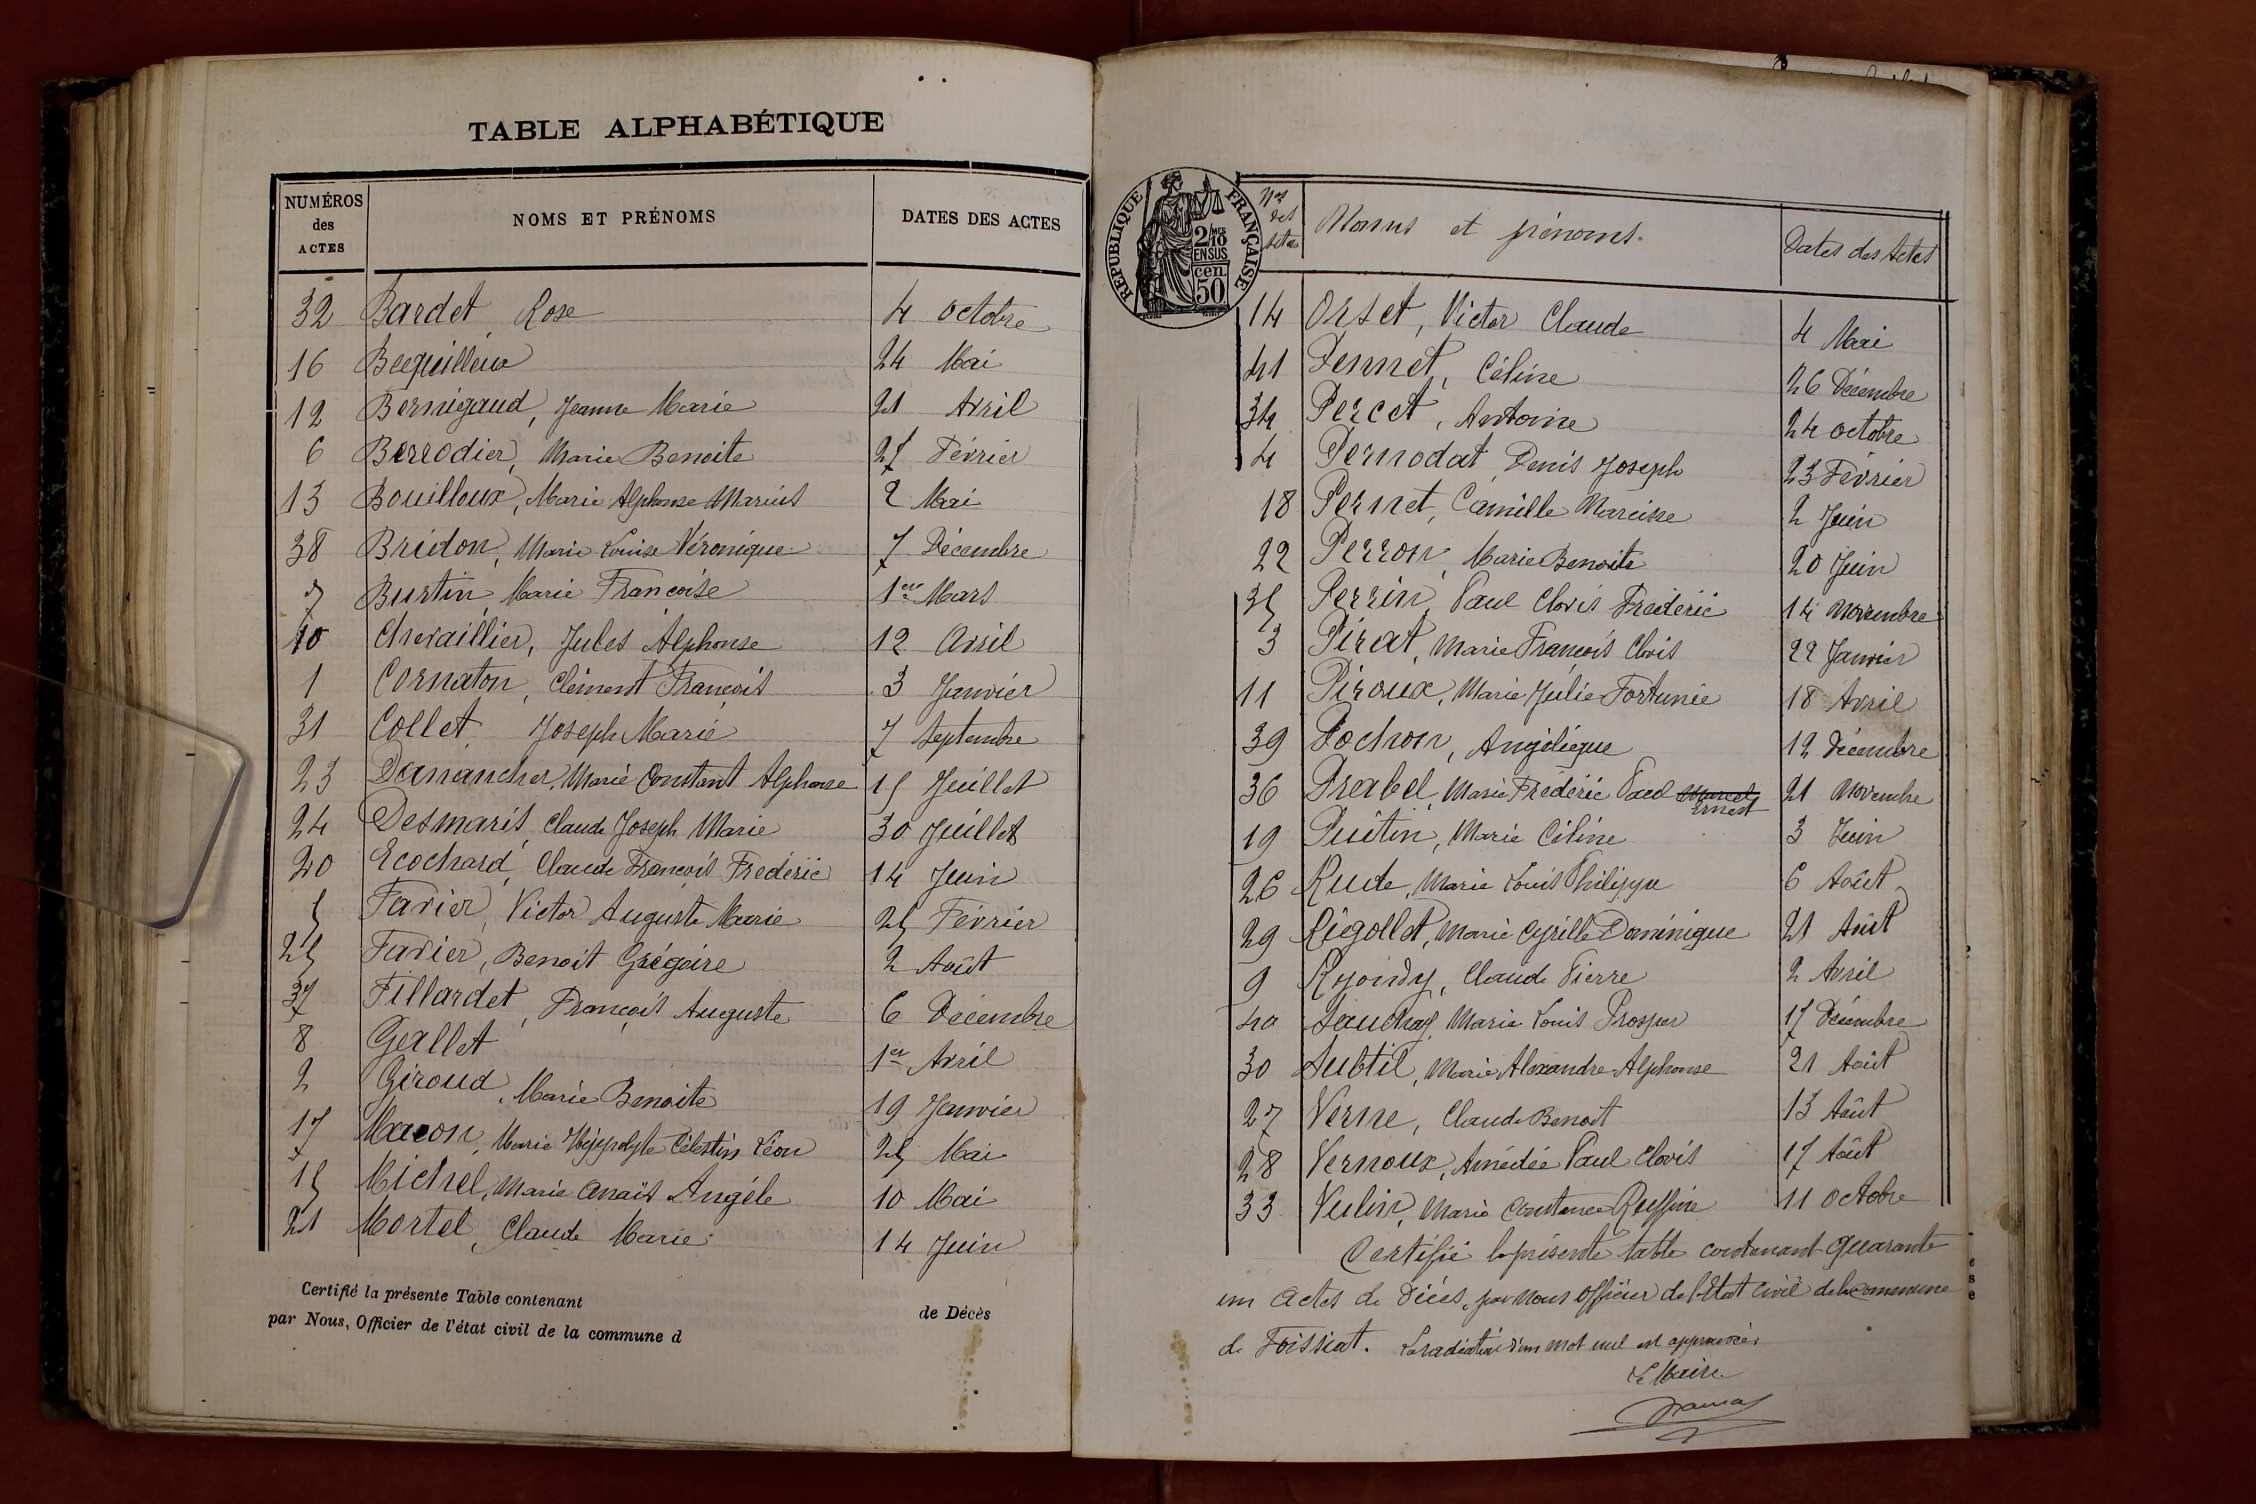 TABLE ALPHABÉTIQUE
NUMÉROS des ACTES NOMS ET PRÉNOMS DATES DES ACTES
32 Bardet Rose 4 octobre
16 Becquilleux 24 Mai
12 Bernigaud, Jeanne Marie 21 Avril
6 Berrodier, Marie Benoite 27 Février
13 Bouilloux, Marie Alphonse Marius 2 Mai
38 Bridon, Marie Louise Véronique 7 Décembre
7 Burtin Marie Françoise 1er Mars
10 Chevaillier, Jules Alphonse 12 Avril
1 Cornaton, Clément François 3 Janvier
31 Collet Joseph Marie 7 Septembre
23 Danancher, Marie Constant Alphonse 15 Juillet
24 Desmaris Claude Joseph Marie 30 Juillet
20 Ecochard Claude François Frédéric 14 Juin
5 Favier, Victor Auguste Marie 25 Février
25 Favier, Benoit Grégoire 2 Août
37 Fillardet, François Auguste 6 Décembre
8 Gallet 1er Avril
2 Giroud, Marie Benoite 19 Janvier
17 Macon, Marie Hippolyte Célestin Léon 25 Mai
15 Michel, Marie Anaïs Angèle 10 Mai
21 Mortel, Claude Marie 14 Juin
Certifié la présente Table contenant de Décès
par Nous, Officier de l'état civil de la commune d
RÉPUBLIQUE FRANÇAISE
2/10 MES EN SUS
50 cen.
Nos des actes Noms et prénoms. Dates des Actes
14 Orset, Victor Claude 4 Mai
41 Pennet, Céline 26 Décembre
34 Percet, Antoine 24 octobre
4 Pernodat Denis Joseph 23 Février
18 Pernet, Camille Narcisse 2 Juin
22 Perron, Marie Benoite 20 Juin
35 Perrin, Paul Clovis Frédéric 14 Novembre
3 Pirat, Marie François Clovis 22 Janvier
11 Piroux, Marie Julie Fortunée 18 Avril
39 Pochon, Angélique 12 Décembre
36 Prabel, Marie Frédéric Paul Marcel Ernest 21 Novembre
19 Puitin, Marie Céline 3 Juin
26 Rude, Marie Louis Philippe 6 Août
29 Rigollet, Marie Cyrille Dominique 21 Août
9 Claude Pierre 2 Avril
40 Marie Louis Prosper 17 Décembre
30 Subtil, Marie Alexandre Alphonse 21 Août
27 Verne, Claude Benoit 13 Août
28 Vernoux, Amédée Paul Clovis 17 Août
33 Vulin, Marie Constance Ruffine 11 octobre
Certifié la présente table contenant quarante
un actes de Décès, par Nous Officier de l'Etat civil de la commune
de Foissiat. La radiation d'un mot nul est approuvée.
Le Maire